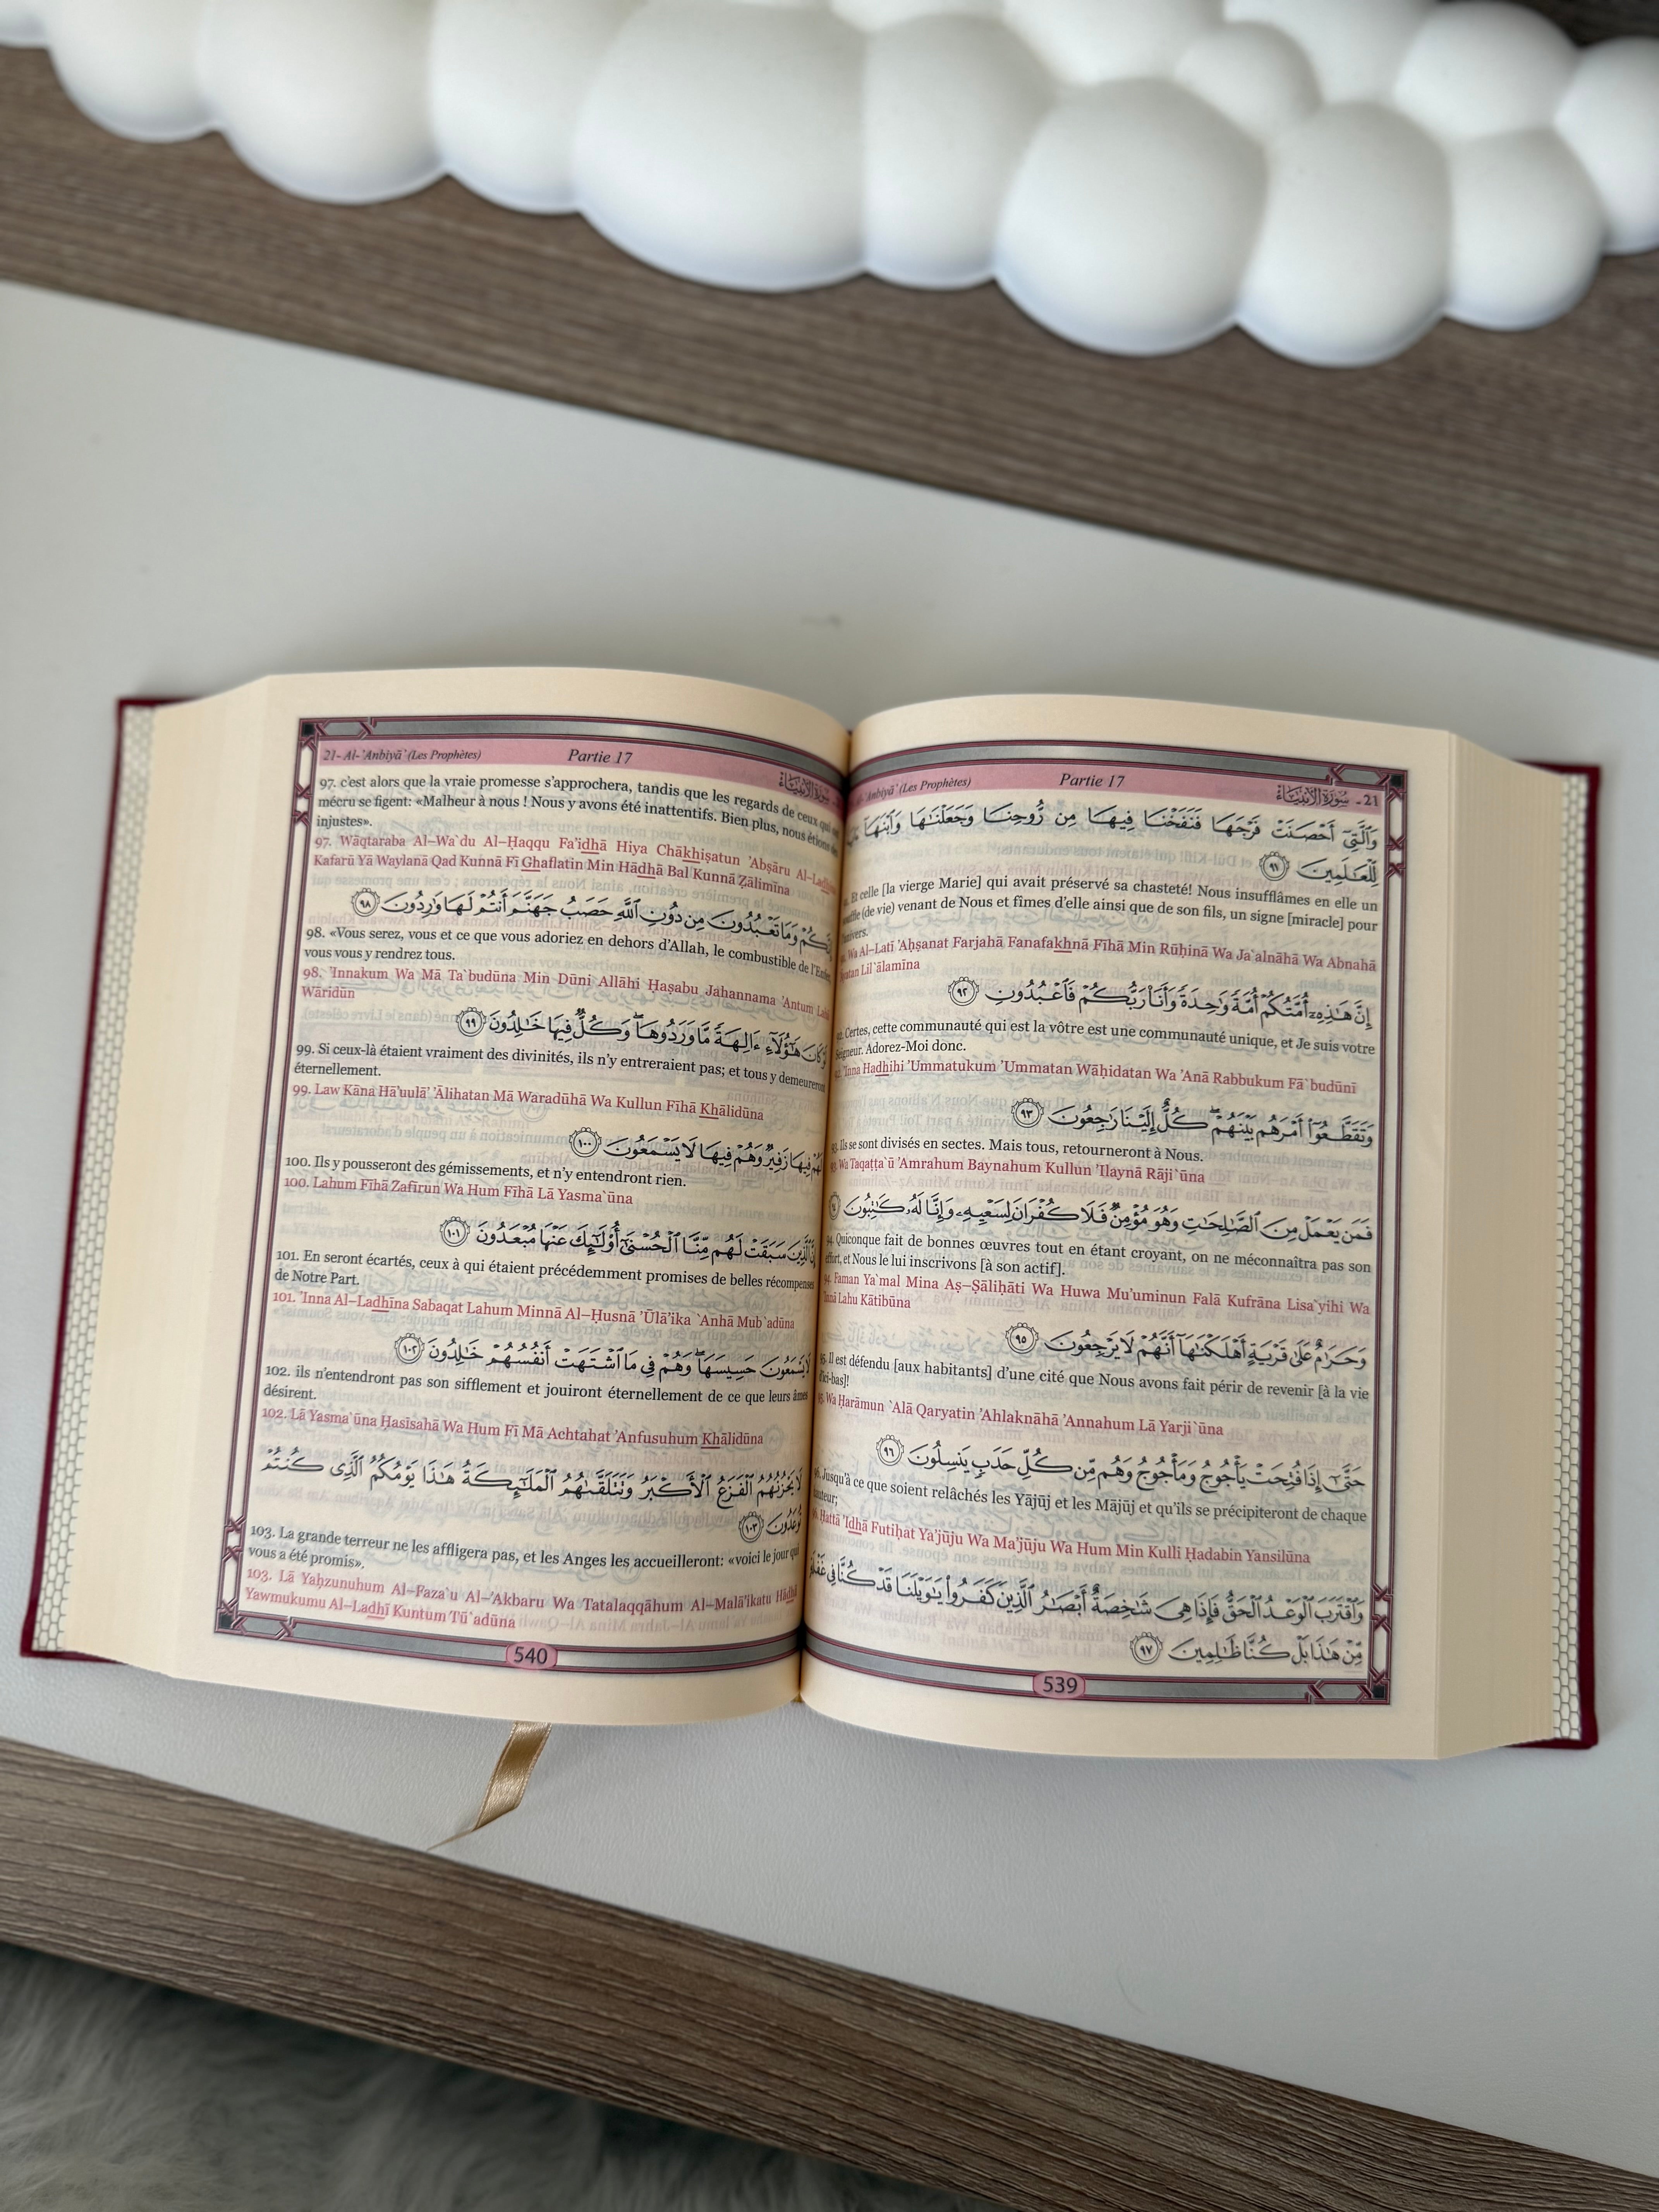 Anbiyā' (Les Prophètes) Partie 17 سُورَةُ الْأَنْبِيَاءِ - 21
وَٱلَّتِىٓ أَحْصَنَتْ فَرْجَهَا فَنَفَخْنَا فِيهَا مِن رُّوحِنَا وَجَعَلْنَٰهَا وَٱبْنَهَآ
لِّلْعَٰلَمِينَ ٩١
Et celle [la vierge Marie] qui avait préservé sa chasteté! Nous insufflâmes en elle un
souffle (de vie) venant de Nous et fîmes d'elle ainsi que de son fils, un signe [miracle] pour
l'univers.
Wa Al–Latī 'Aḥṣanat Farjahā Fanafakhnā Fīhā Min Rūḥinā Wa Ja`alnāhā Wa Abnahā
Lil`ālamīna
إِنَّ هَٰذِهِۦٓ أُمَّتُكُمْ أُمَّةً وَٰحِدَةً وَأَنَا۠ رَبُّكُمْ فَٱعْبُدُونِ ٩٢
Certes, cette communauté qui est la vôtre est une communauté unique, et Je suis votre
Seigneur. Adorez-Moi donc.
'Inna Hadhihi 'Ummatukum 'Ummatan Wāḥidatan Wa 'Anā Rabbukum Fā`budūni
وَتَقَطَّعُوٓا۟ أَمْرَهُم بَيْنَهُمْ ۖ كُلٌّ إِلَيْنَا رَٰجِعُونَ ٩٣
93. Ils se sont divisés en sectes. Mais tous, retourneront à Nous.
93. Wa Taqaṭṭa`ū 'Amrahum Baynahum Kullun 'Ilaynā Rāji`ūna
فَمَن يَعْمَلْ مِنَ ٱلصَّٰلِحَٰتِ وَهُوَ مُؤْمِنٌ فَلَا كُفْرَانَ لِسَعْيِهِۦ وَإِنَّا لَهُۥ كَٰتِبُونَ
94. Quiconque fait de bonnes œuvres tout en étant croyant, on ne méconnaîtra pas son
effort, et Nous le lui inscrivons [à son actif].
94. Faman Ya`mal Mina Aṣ–Ṣāliḥāti Wa Huwa Mu'uminun Falā Kufrāna Lisa`yihi Wa
'Innā Lahu Kātibūna
وَحَرَٰمٌ عَلَىٰ قَرْيَةٍ أَهْلَكْنَٰهَآ أَنَّهُمْ لَا يَرْجِعُونَ ٩٥
95. Il est défendu [aux habitants] d'une cité que Nous avons fait périr de revenir [à la vie
d'ici-bas]!
95. Wa Ḥarāmun `Alā Qaryatin 'Ahlaknāhā 'Annahum Lā Yarji`ūna
حَتَّىٰٓ إِذَا فُتِحَتْ يَأْجُوجُ وَمَأْجُوجُ وَهُم مِّن كُلِّ حَدَبٍ يَنسِلُونَ ٩٦
96. Jusqu'à ce que soient relâchés les Yājūj et les Mājūj et qu'ils se précipiteront de chaque
hauteur;
Ḥattā 'Idhā Futiḥat Ya'jūju Wa Ma'jūju Wa Hum Min Kulli Ḥadabin Yansilūna
وَٱقْتَرَبَ ٱلْوَعْدُ ٱلْحَقُّ فَإِذَا هِىَ شَٰخِصَةٌ أَبْصَٰرُ ٱلَّذِينَ كَفَرُوا۟ يَٰوَيْلَنَا قَدْ كُنَّا فِى غَفْلَةٍ
مِّنْ هَٰذَا بَلْ كُنَّا ظَٰلِمِينَ ٩٧
539
21- Al-'Anbiyā' (Les Prophètes) Partie 17 سُورَةُ الْأَنْبِيَاءِ
97. c'est alors que la vraie promesse s'approchera, tandis que les regards de ceux qui
mécru se figent: «Malheur à nous ! Nous y avons été inattentifs. Bien plus, nous étions des
injustes».
97. Wāqtaraba Al–Wa`du Al–Ḥaqqu Fa'idhā Hiya Chākhiṣatun 'Abṣāru Al–Ladhīna
Kafarū Yā Waylanā Qad Kunnā Fī Ghaflatin Min Hādhā Bal Kunnā Ẓālimīna
إِنَّكُمْ وَمَا تَعْبُدُونَ مِن دُونِ ٱللَّهِ حَصَبُ جَهَنَّمَ أَنتُمْ لَهَا وَٰرِدُونَ ٩٨
98. «Vous serez, vous et ce que vous adoriez en dehors d'Allah, le combustible de l'Enfer,
vous vous y rendrez tous.
98. 'Innakum Wa Mā Ta`budūna Min Dūni Allāhi Ḥaṣabu Jahannama 'Antum Lahā
Wāridūn
لَوْ كَانَ هَٰٓؤُلَآءِ ءَالِهَةً مَّا وَرَدُوهَا ۖ وَكُلٌّ فِيهَا خَٰلِدُونَ ٩٩
99. Si ceux-là étaient vraiment des divinités, ils n'y entreraient pas; et tous y demeureront
éternellement.
99. Law Kāna Hā'uulā' 'Ālihatan Mā Waradūhā Wa Kullun Fīhā Khālidūna
لَهُمْ فِيهَا زَفِيرٌ وَهُمْ فِيهَا لَا يَسْمَعُونَ ١٠٠
100. Ils y pousseront des gémissements, et n'y entendront rien.
100. Lahum Fīhā Zafīrun Wa Hum Fīhā Lā Yasma`ūna
إِنَّ ٱلَّذِينَ سَبَقَتْ لَهُم مِّنَّا ٱلْحُسْنَىٰٓ أُو۟لَٰٓئِكَ عَنْهَا مُبْعَدُونَ ١٠١
101. En seront écartés, ceux à qui étaient précédemment promises de belles récompenses
de Notre Part.
101. 'Inna Al–Ladhīna Sabaqat Lahum Minnā Al–Ḥusnā 'Ūlā'ika `Anhā Mub`adūna
لَا يَسْمَعُونَ حَسِيسَهَا ۖ وَهُمْ فِى مَا ٱشْتَهَتْ أَنفُسُهُمْ خَٰلِدُونَ ١٠٢
102. ils n'entendront pas son sifflement et jouiront éternellement de ce que leurs âmes
désirent.
102. Lā Yasma`ūna Ḥasīsahā Wa Hum Fī Mā Achtahat 'Anfusuhum Khālidūna
لَا يَحْزُنُهُمُ ٱلْفَزَعُ ٱلْأَكْبَرُ وَتَتَلَقَّىٰهُمُ ٱلْمَلَٰٓئِكَةُ هَٰذَا يَوْمُكُمُ ٱلَّذِى كُنتُمْ
تُوعَدُونَ ١٠٣
103. La grande terreur ne les affligera pas, et les Anges les accueilleront: «voici le jour qui
vous a été promis».
103. Lā Yaḥzunuhum Al–Faza`u Al–'Akbaru Wa Tatalaqqāhum Al–Malā'ikatu Hādhā
Yawmukumu Al–Ladhī Kuntum Tū`adūna
540